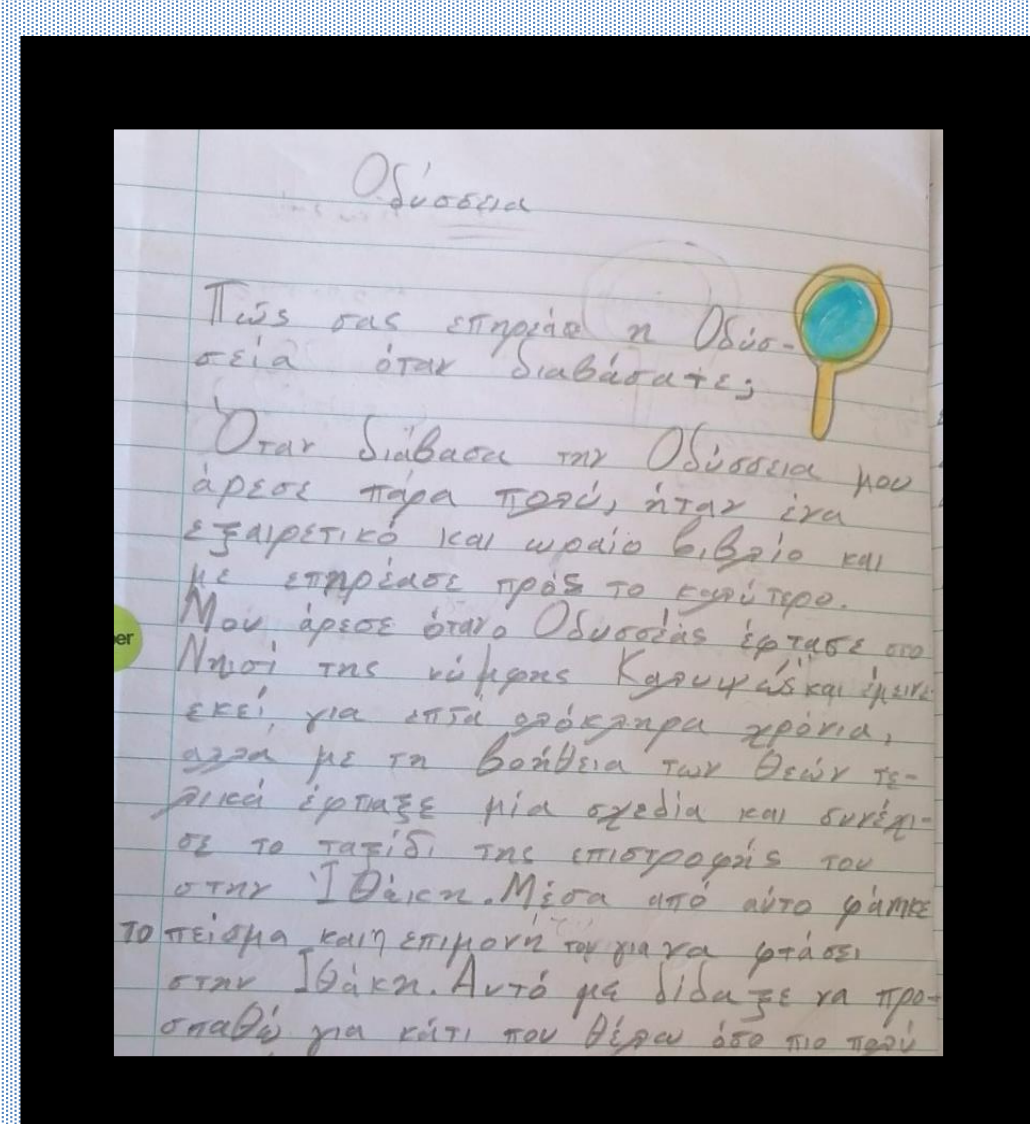 Οδύσσεια
Πώς σας επηρέασε η Οδύσ-
σεία όταν διαβάσατε;
Όταν διάβασα την Οδύσσεια μου
άρεσε πάρα πολύ, ήταν ένα
εξαιρετικό και ωραίο βιβλίο και
με επηρέασε πρός το καλύτερο.
Μου άρεσε όταν ο Οδυσσέας έφτασε στο
Νησί της νύμφης Καλυψώς και έμεινε
εκεί, για επτά ολόκληρα χρόνια,
αλλά με τη βοήθεια των θεών τε-
λικά έφτιαξε μία σχεδία και συνέχι-
σε το ταξίδι της επιστροφής του
στην Ιθάκη. Μέσα από αύτο φάνηκε
το πείσμα και η επιμονή του για να φτάσει
στην Ιθάκη. Αυτό με δίδαξε να προ-
σπαθώ για κάτι που θέλω όσο πιο πολύ